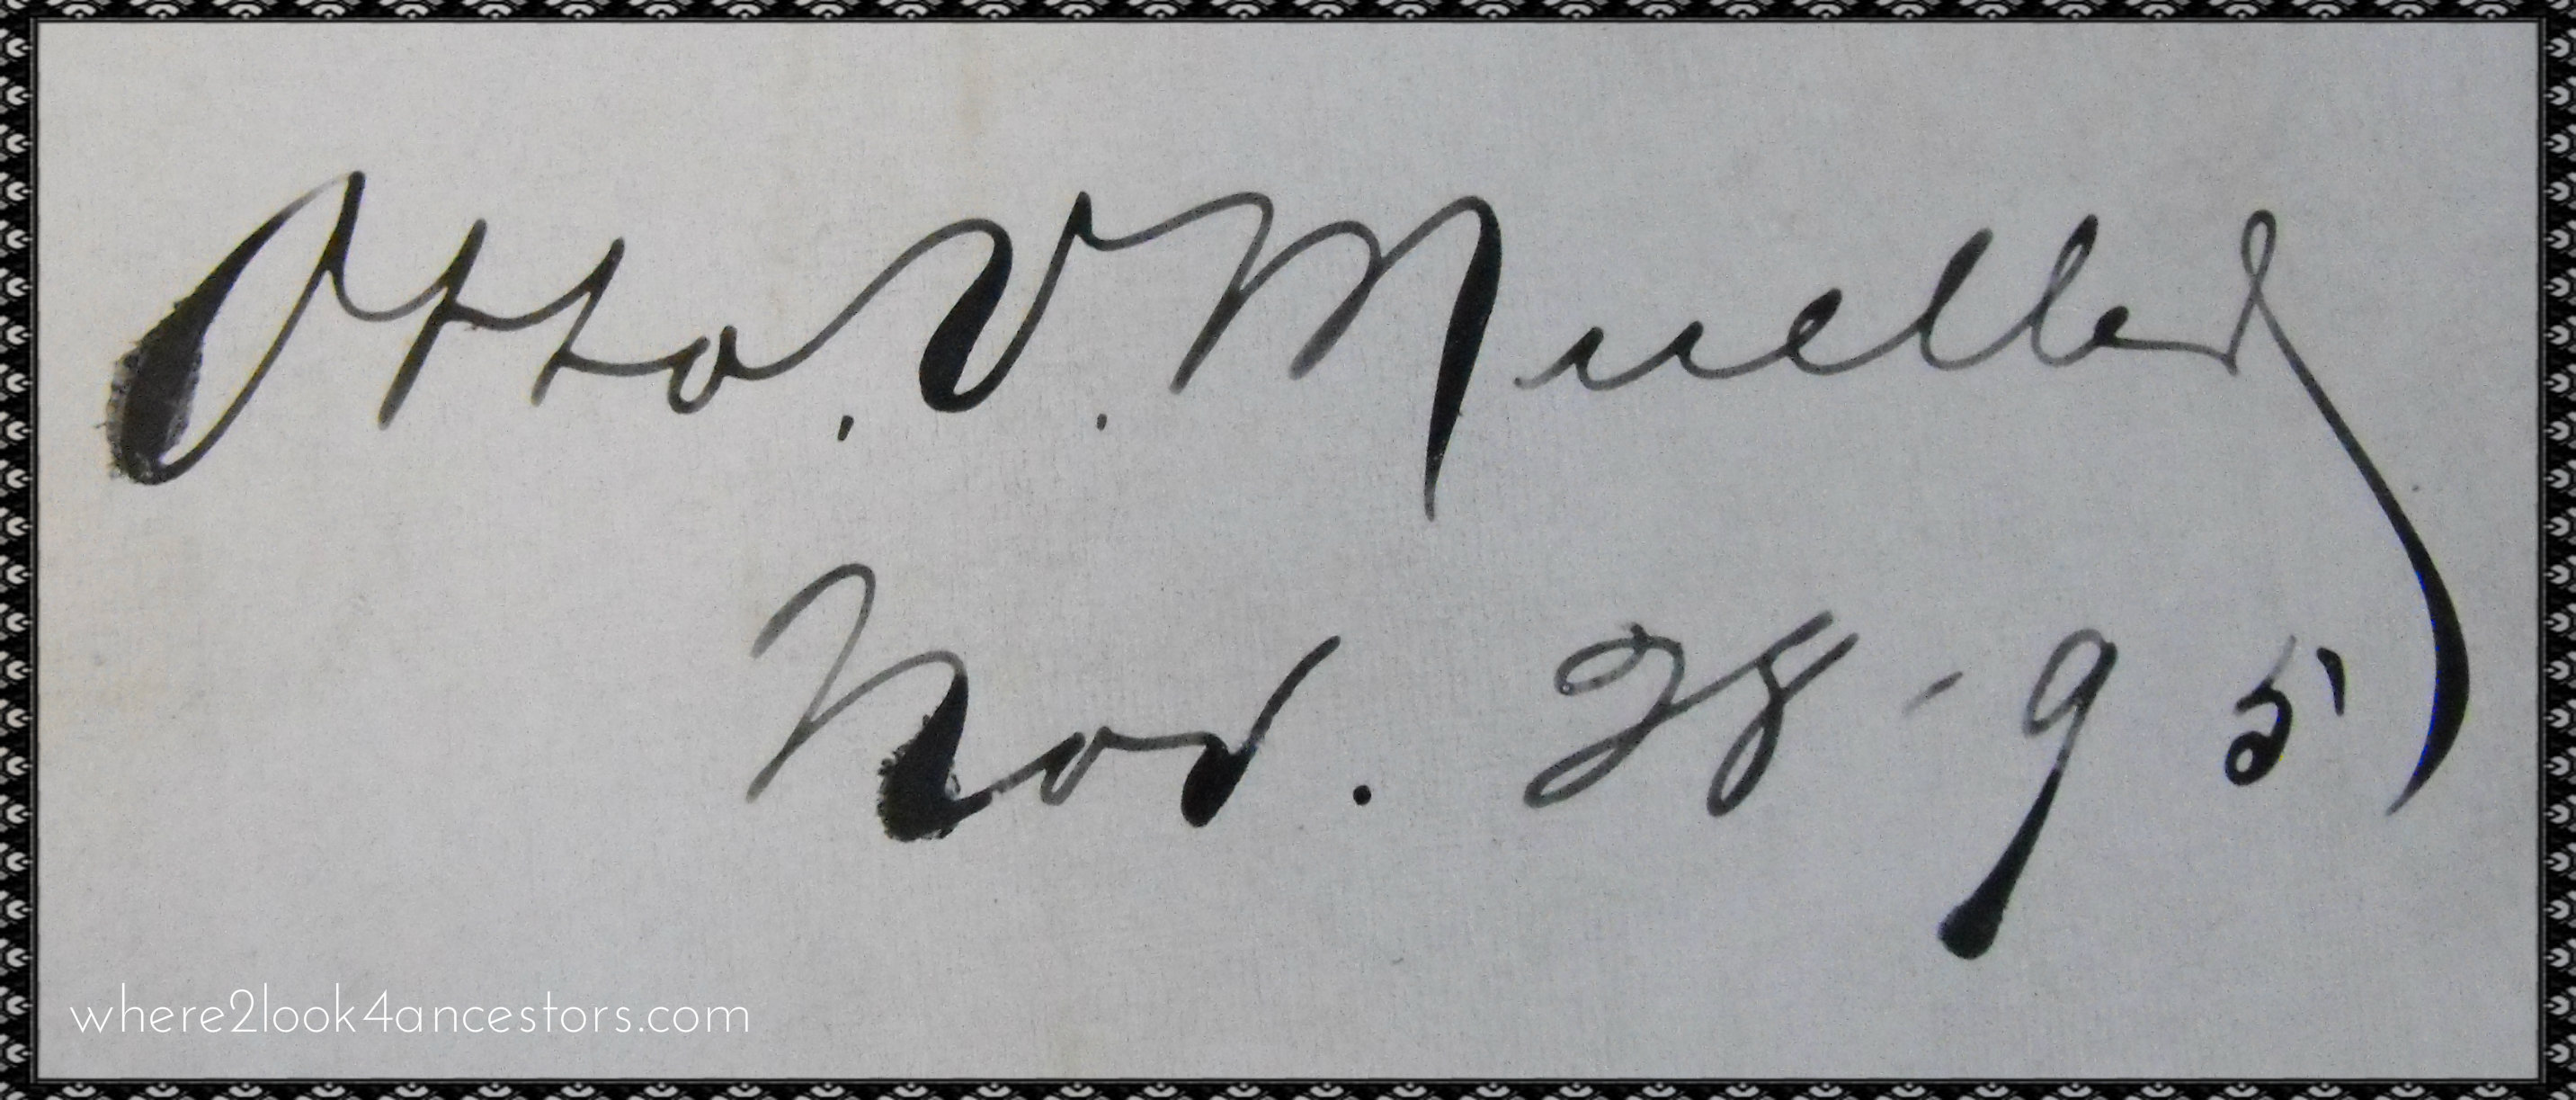 Otto. V. Mueller
Nov. 28 - 95
where2look4ancestors.com